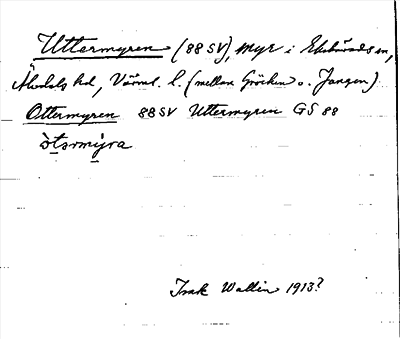 Uttermyren (88 SV), myr i Ekshärads sn,
Älvdals hd, Värml. l. (mellan Gröcken o. Jangen)
Ottermyren 88 SV Uttermyren GS 88
òtərmỳra
Isak Wallin 1913?